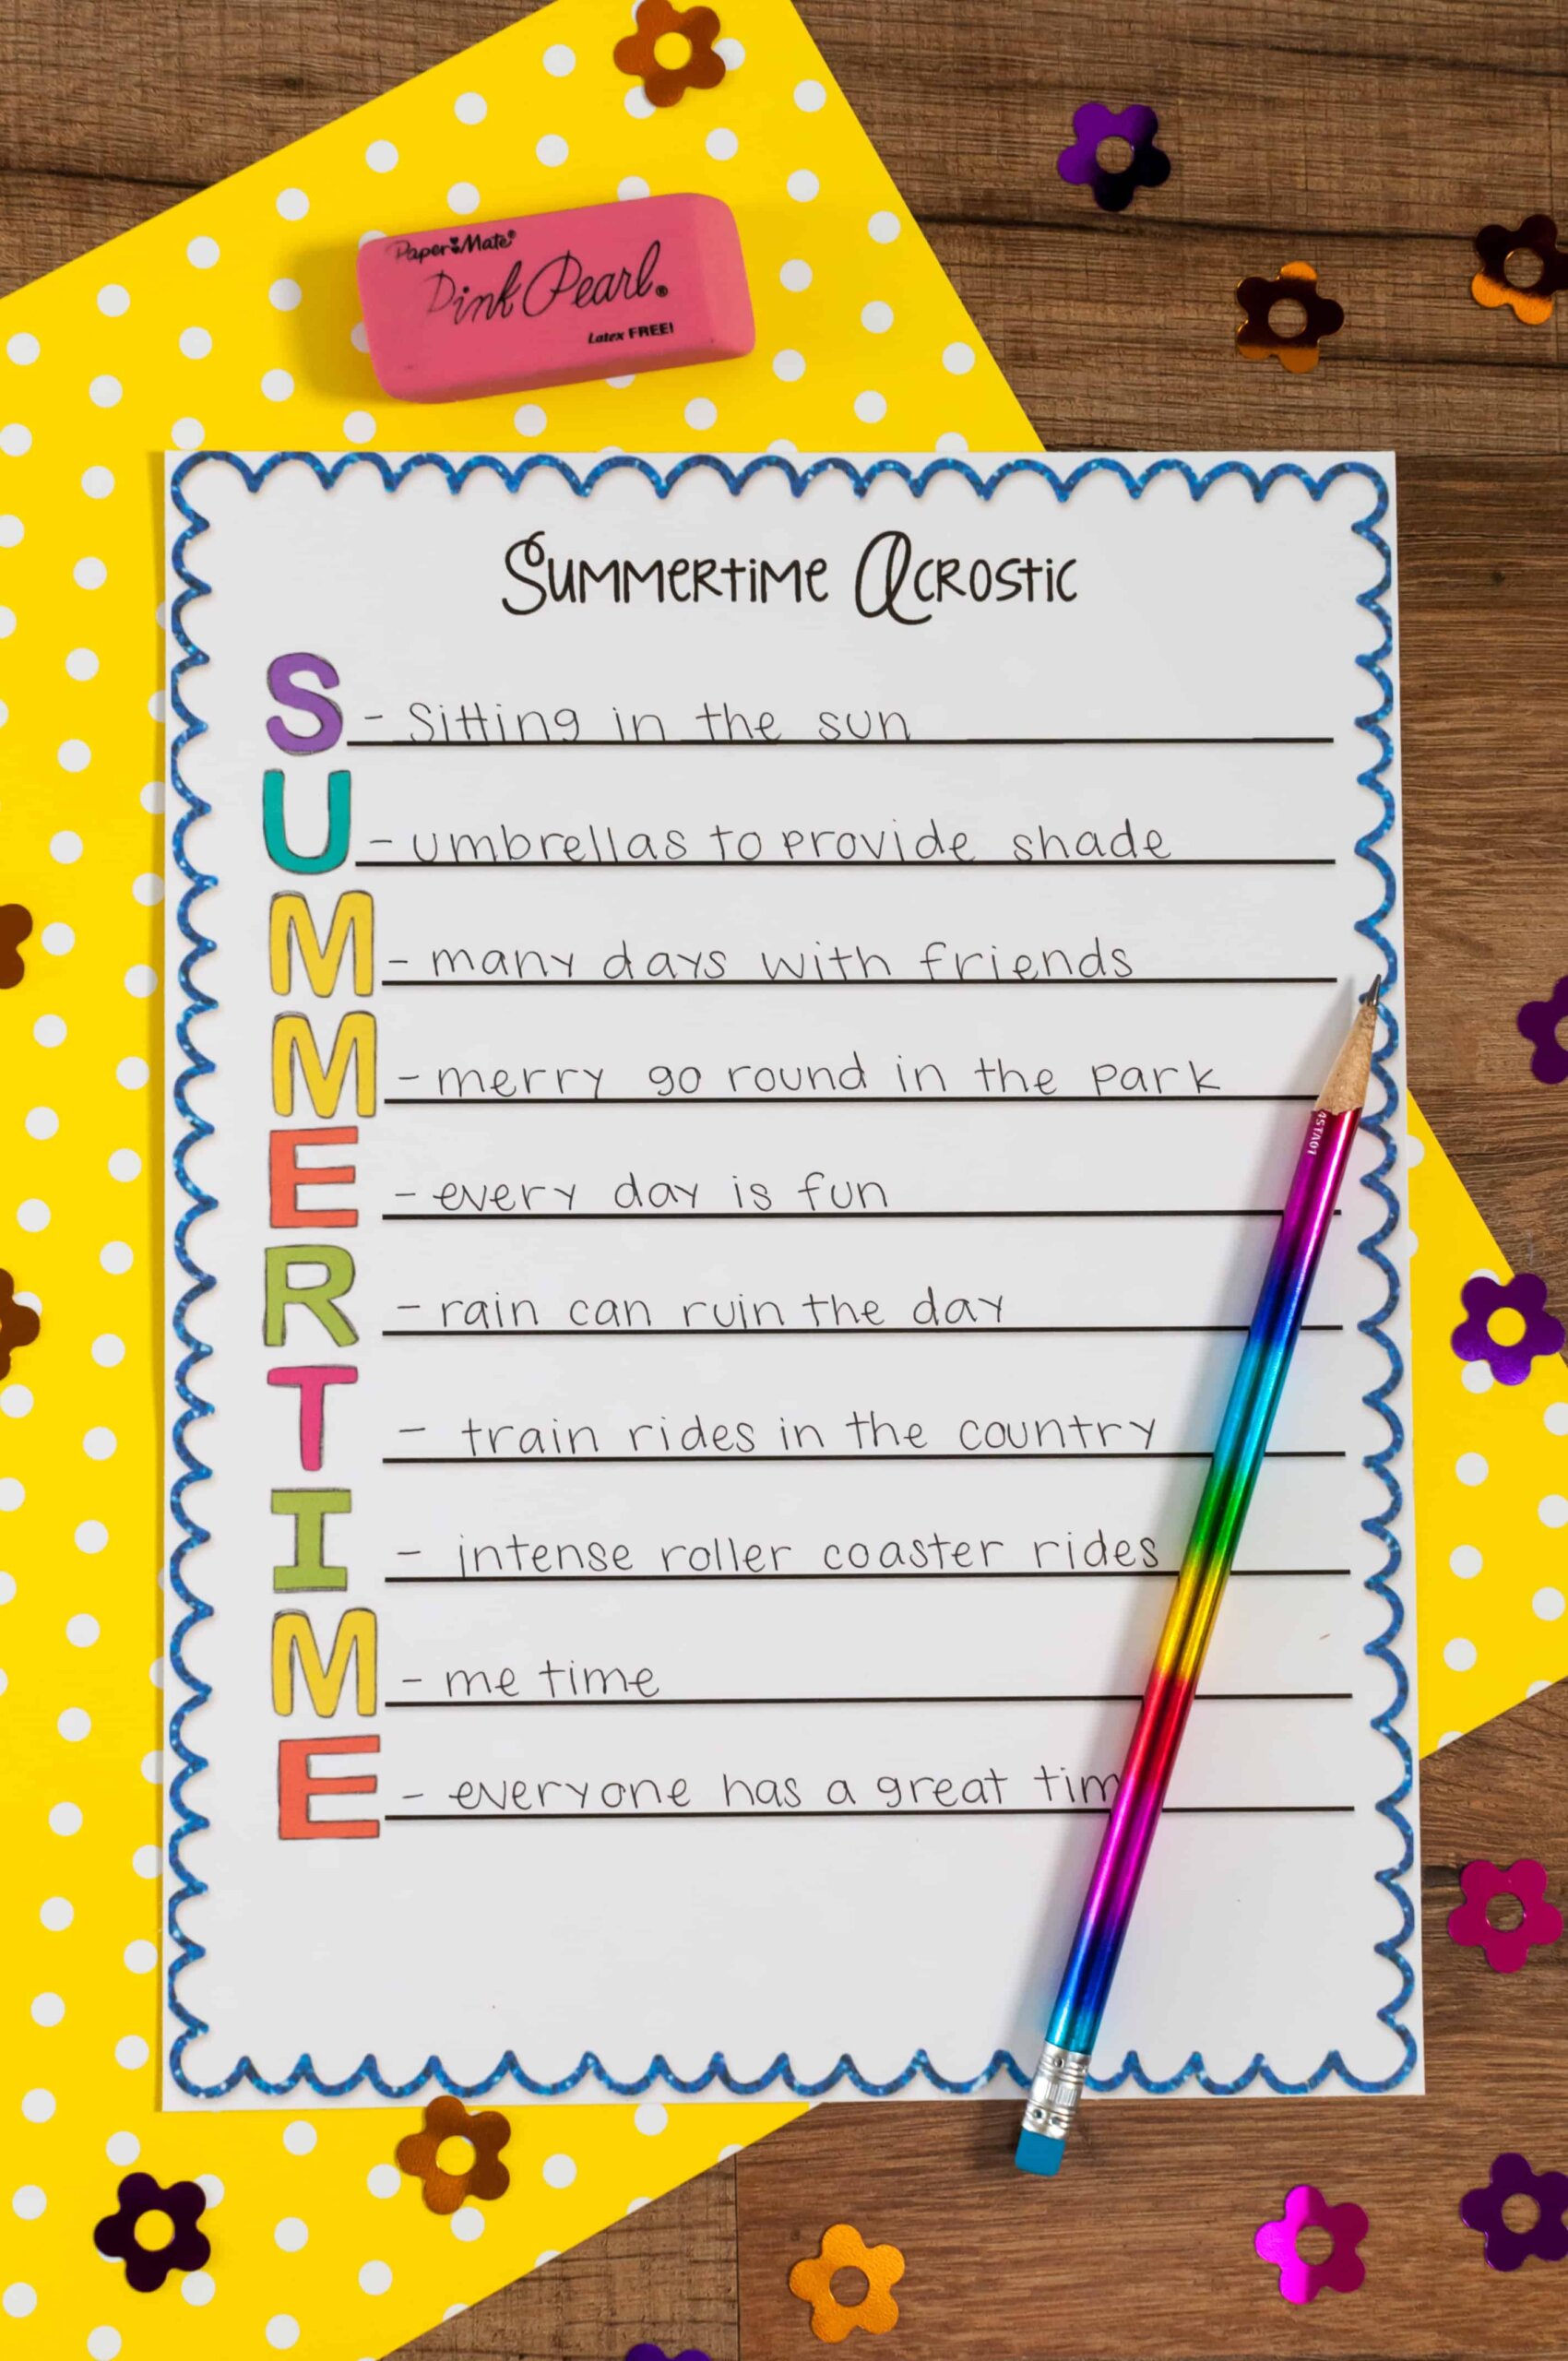 Paper Mate®
Pink Pearl®
Latex FREE!
Summertime Acrostic
S - Sitting in the sun
U - umbrellas to provide shade
M - many days with friends
M - merry go round in the park
E - every day is fun
R - rain can ruin the day
T - train rides in the country
I - intense roller coaster rides
M - me time
E - everyone has a great tim